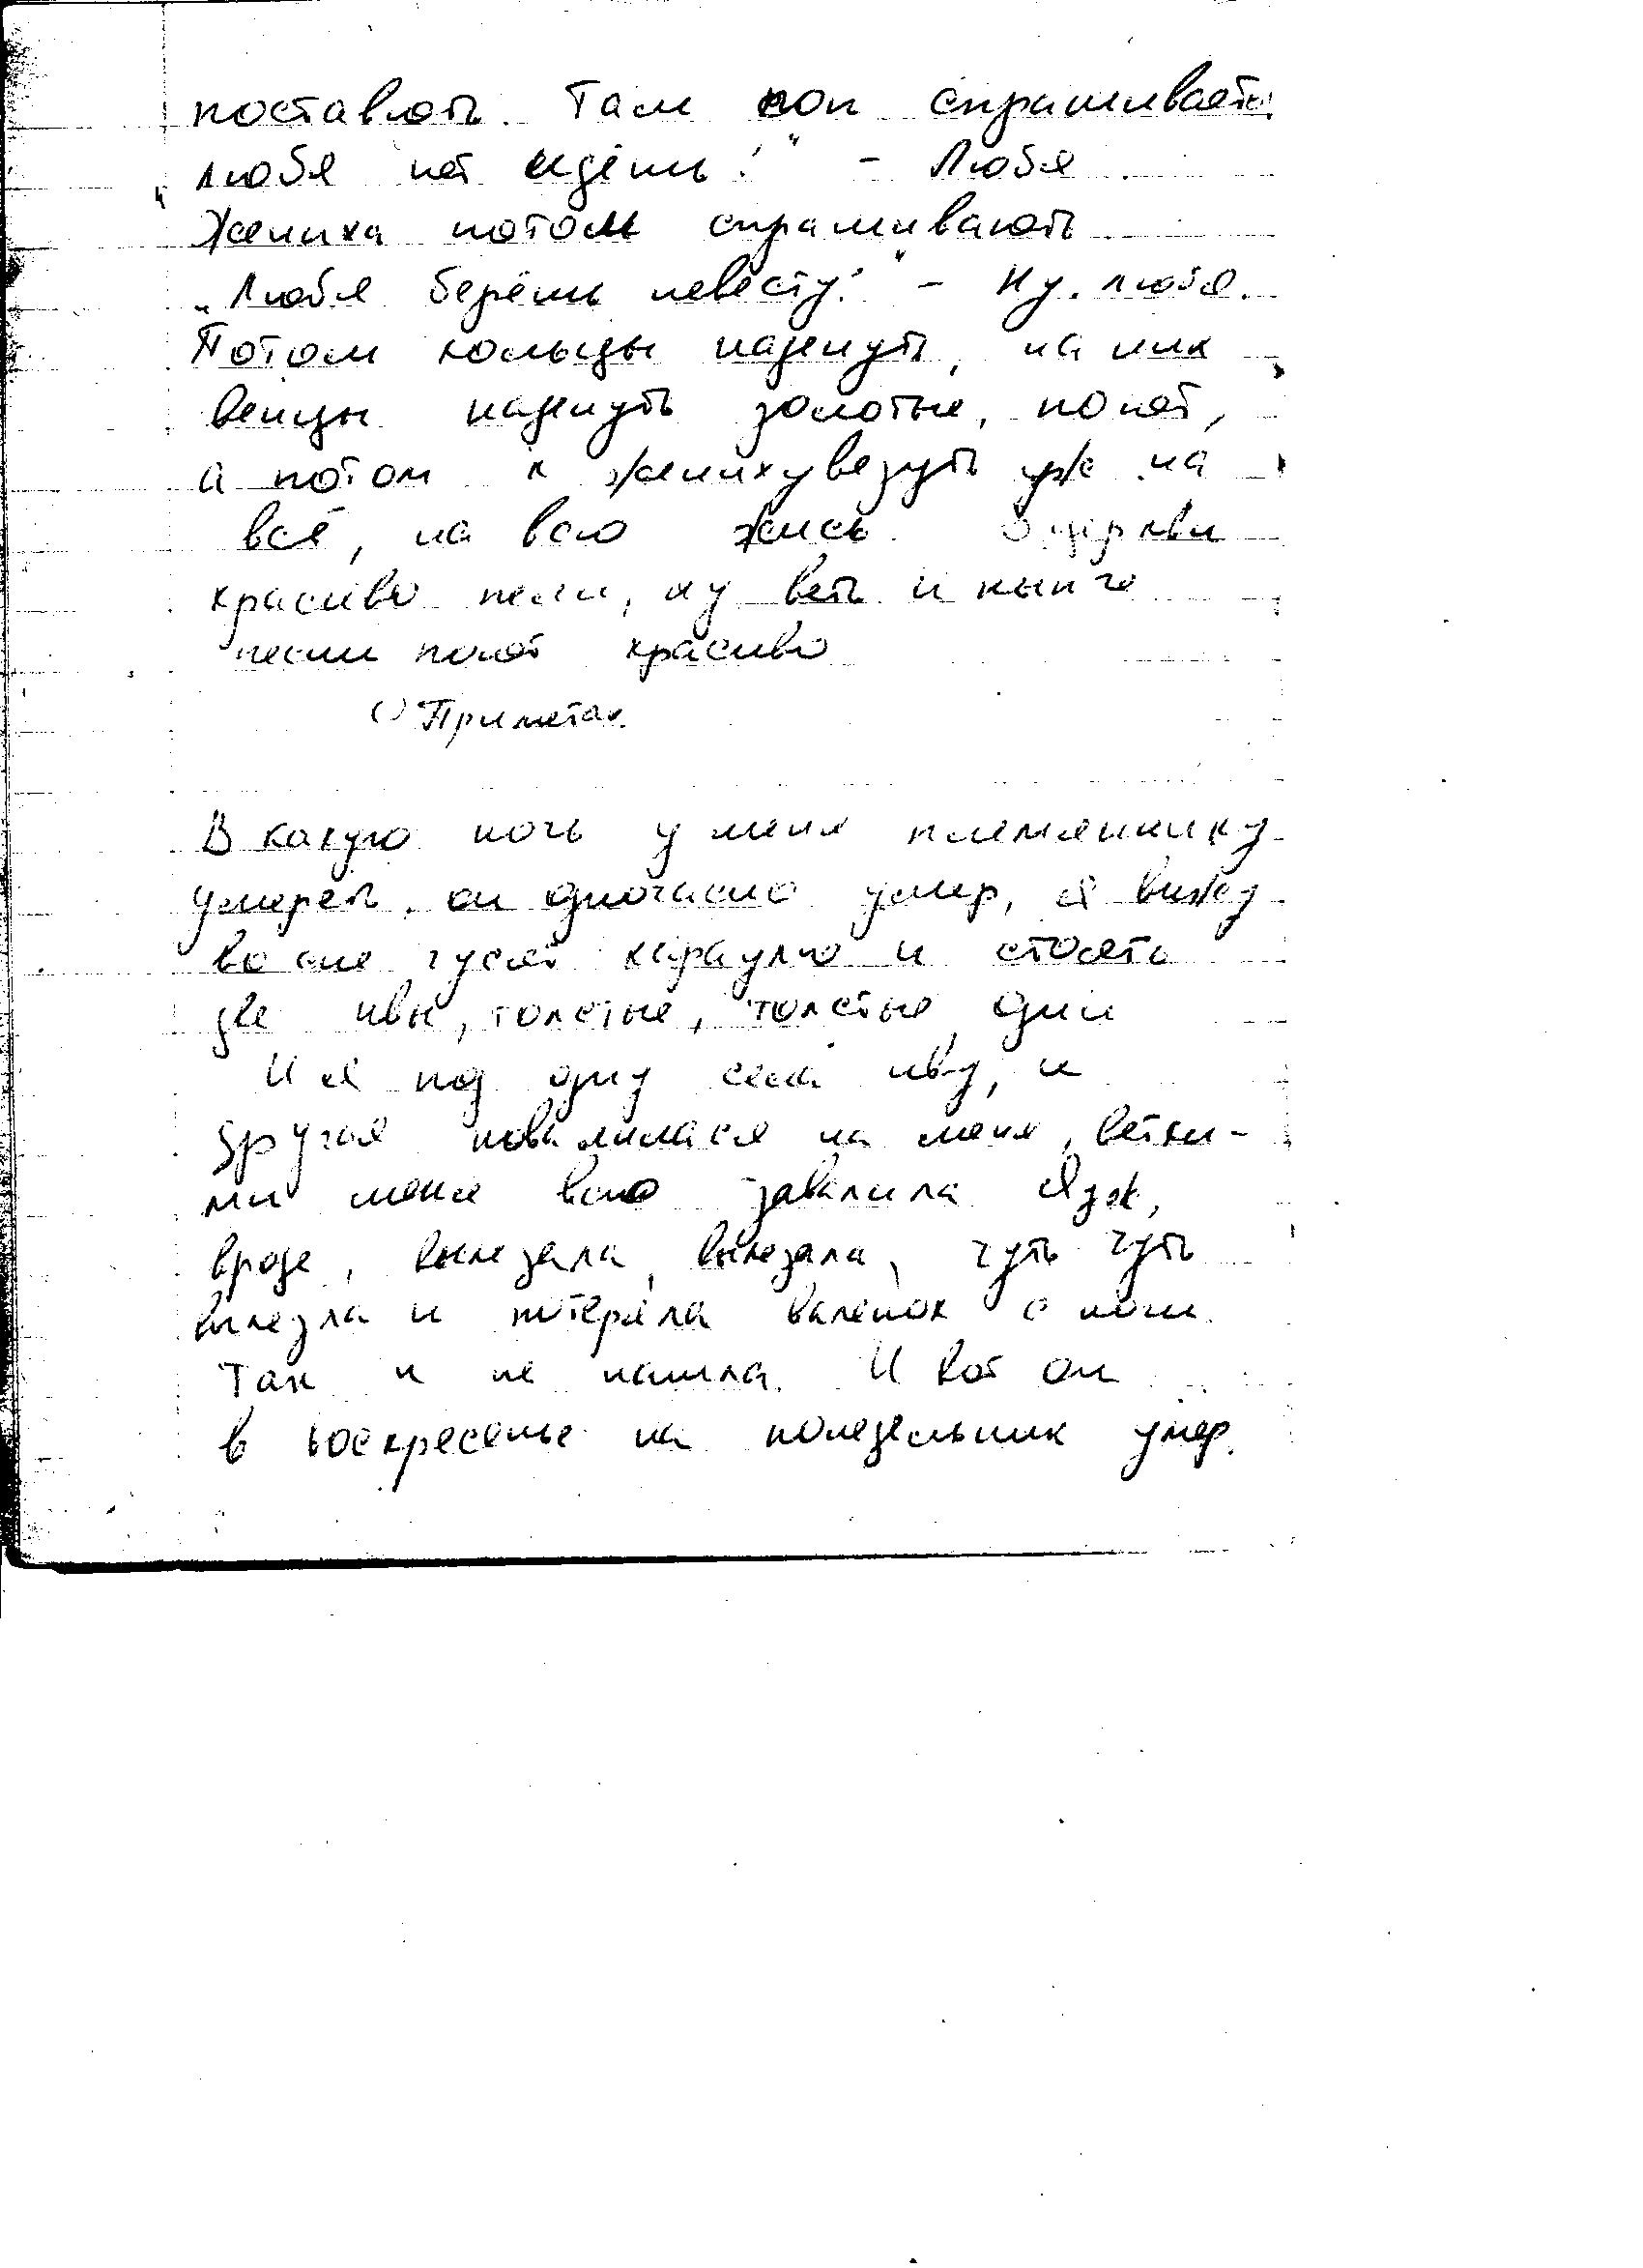 поставють. Там поп спрашиваеть:
„любя нет идёшь?" – Любя.
Жениха потом спрашивають
„Любя берёшь невесту?" – Ну, любя.
Потом кольцы наденуть, на них
венцы наденуть золотые, поют,
а потом к жениху везуть уж на
всё, на всю жись. В церкви
красиво пели, ну веть и нынче
песни поют красиво
О приметах.
В какую ночь у меня племяннику
умереть, он одночасно умер, я вижу
во сне гусей караулю и стоять
две ивы, толстые, толстые одни
И я под одну села иву, и
другая повалилася на меня,ветки-
ми меня всю завалила Я уж,
вроде, вылезала, вылезала, чуть чуть
вылезла и потеряла валенок с ноги.
Так и не нашла. И вот он
в воскресенье на понедельник умер.